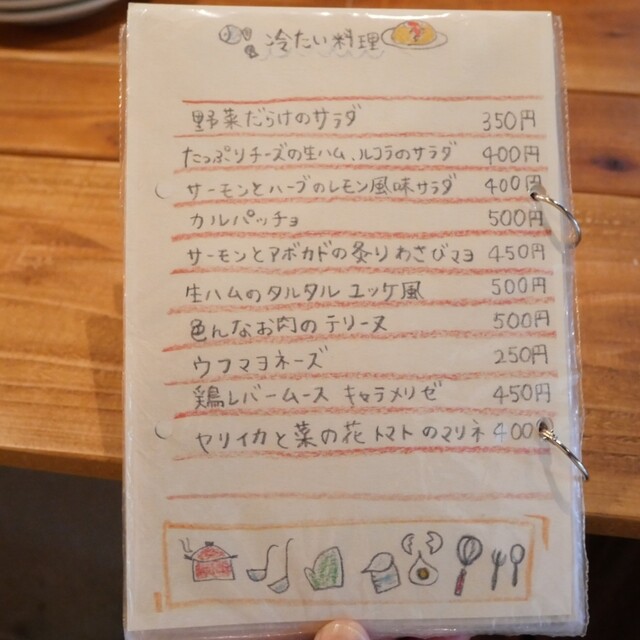 冷たい料理
野菜だらけのサラダ 350円
たっぷりチーズの生ハム、ルコラのサラダ 400円
サーモンとハーブのレモン風味サラダ 400円
カルパッチョ 500円
サーモンとアボカドの炙りわさびマヨ 450円
生ハムのタルタル ユッケ風 500円
色んなお肉のテリーヌ 500円
ウフマヨネーズ 250円
鶏レバームース キャラメリゼ 450円
ヤリイカと菜の花トマトのマリネ 400